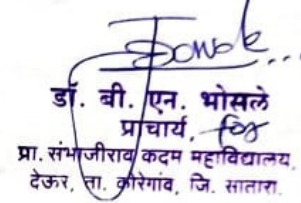 डॉ. बी. एन. भोसले
प्राचार्य, for
प्रा. संभाजीराव कदम महाविद्यालय,
देऊर, ता. कोरेगांव, जि. सातारा.